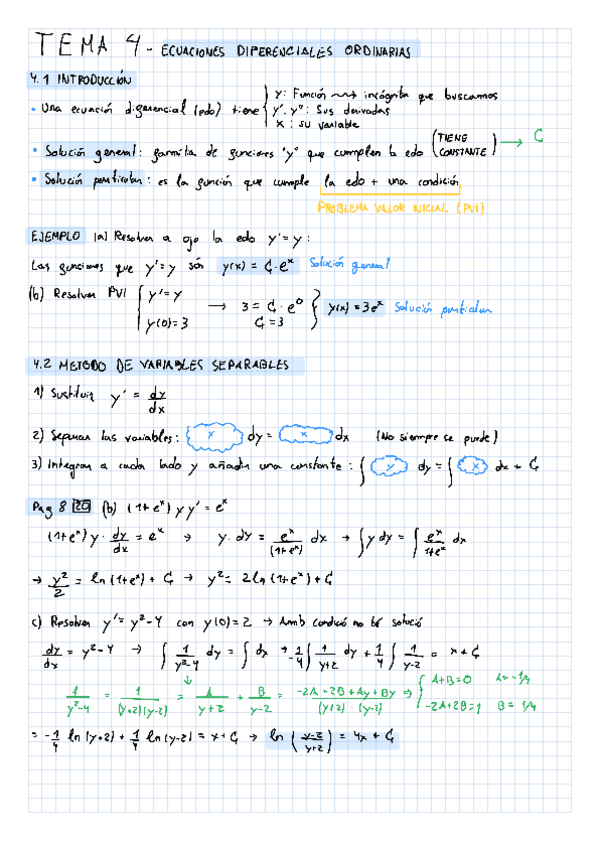 TEMA 4 - ECUACIONES DIFERENCIALES ORDINARIAS
4.1 INTRODUCCIÓN
• Una ecuación diferencial (edo) tiene { y: Función ⟿ incógnita que buscamos
y', y'': Sus derivadas
x: su variable
• Solución general: familia de funciones "y" que cumplen la edo (TIENE CONSTANTE) → C
• Solución particular: es la función que cumple la edo + una condición
PROBLEMA VALOR INICIAL (PVI)
EJEMPLO (a) Resolver a ojo la edo y' = y:
Las funciones que y' = y són y(x) = C · e^x Solución general
(b) Resolver PVI { y' = y → 3 = C · e^0 } y(x) = 3e^x Solución particular
y(0) = 3 C = 3
4.2 METODO DE VARIABLES SEPARABLES
1) Sustituir y' = dy/dx
2) Separar las variables: x dy = x dx (No siempre se puede)
3) Integrar a cada lado y añadir una constante: ∫ y dy = ∫ x dx + C
Pag 8 20 (b) (1+e^x) y y' = e^x
(1+e^x) y · dy/dx = e^x → y · dy = e^x/(1+e^x) dx → ∫ y dy = ∫ e^x/1+e^x dx
→ y²/2 = ln(1+e^x) + C → y² = 2ln(1+e^x) + C
c) Resolver y' = y² - 4 con y(0) = 2 → Amb condició no té solució
dy/dx = y² - 4 → ∫ 1/y²-4 dy = ∫ dx → 1/-4 ∫ 1/y+2 dy + 1/4 ∫ 1/y-2 = x + C
1/y²-4 = 1/(y+2)(y-2) = A/y+2 + B/y-2 = -2A+2B+Ay+By/(y+2)·(y-2) ⇒ { A+B=0 A=-1/4
-2A+2B=1 B=1/4
= -1/4 ln(y+2) + 1/4 ln(y-2) = x + C → ln(y-2/y+2) = 4x + C